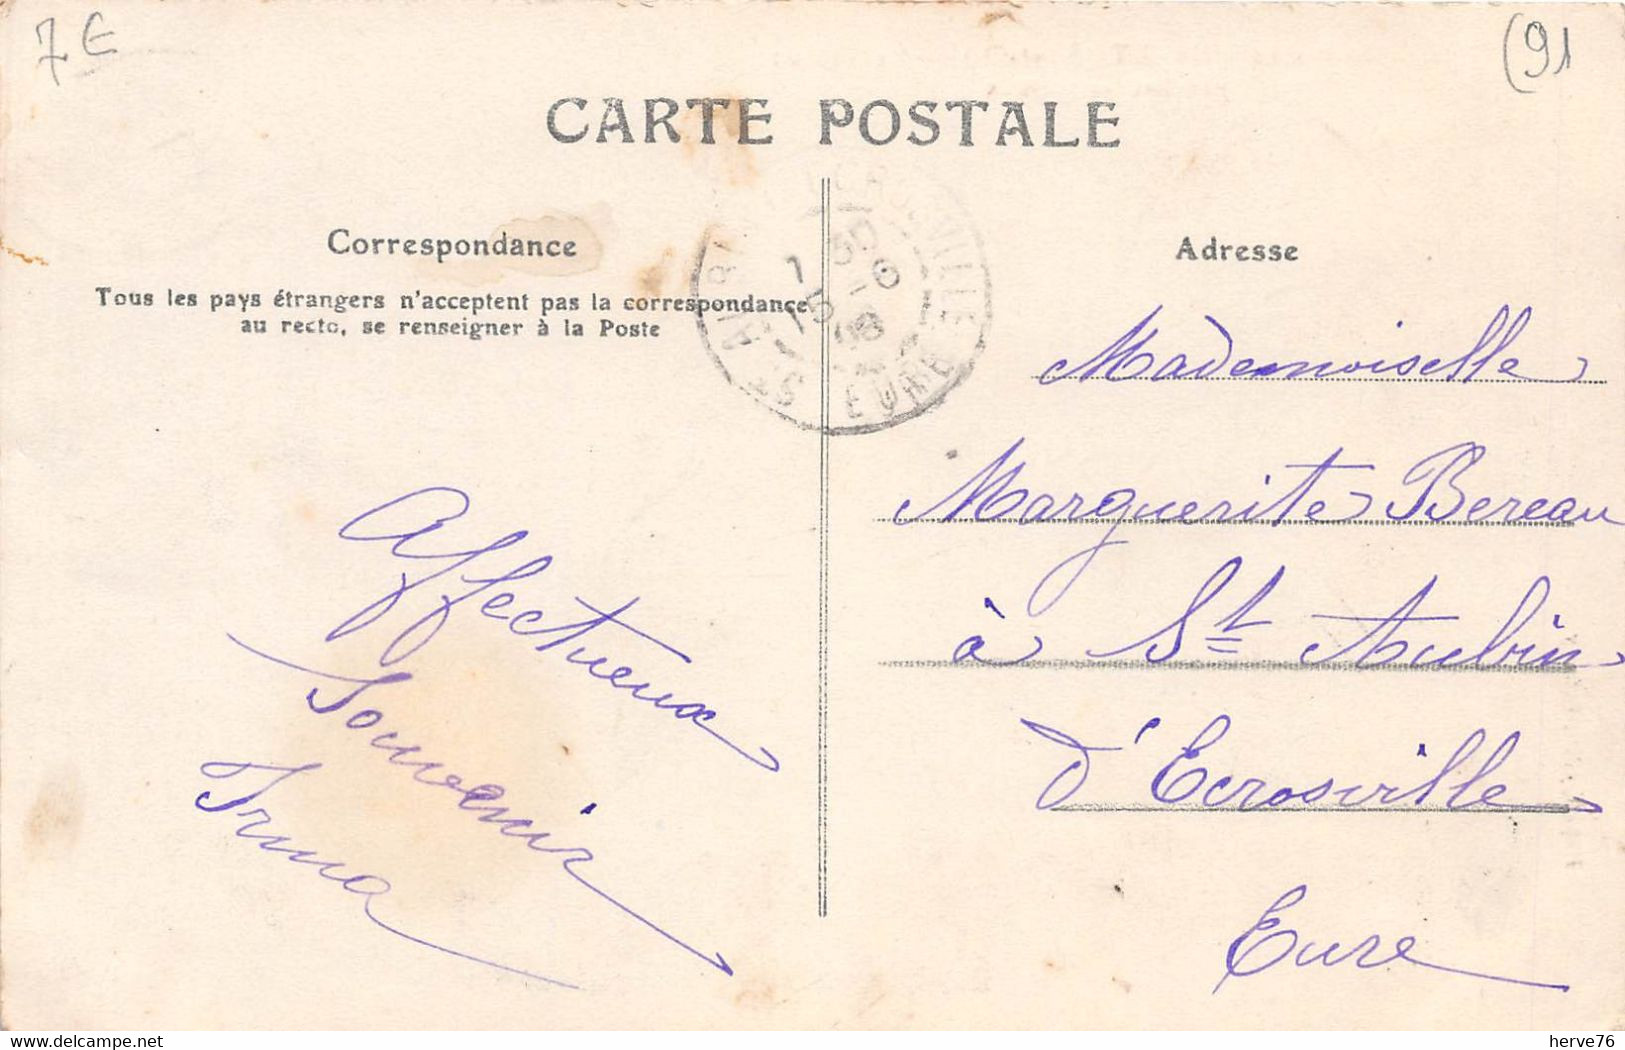 7 €
(91
CARTE POSTALE
Correspondance
Tous les pays étrangers n'acceptent pas la correspondance
au recto, se renseigner à la Poste
Affectueux
Souvenir
Irma
Adresse
Mademoiselle
Marguerite Bereau
à St Aubin
d'Ecrosville
Eure
EURE
www.delcampe.net
herve76